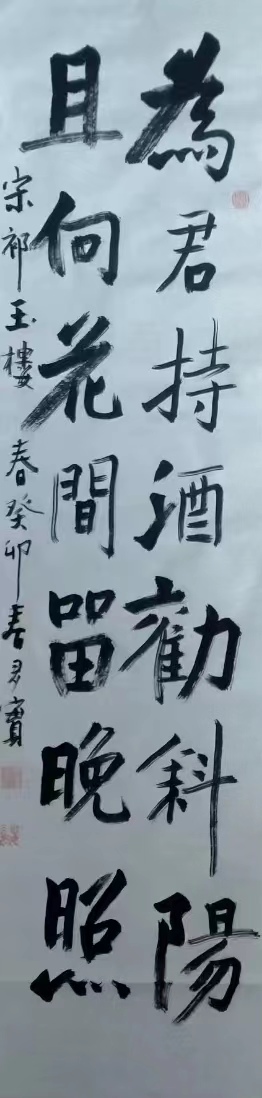 為君持酒勸斜陽
且向花間留晚照
宋祁玉樓春癸卯春君實